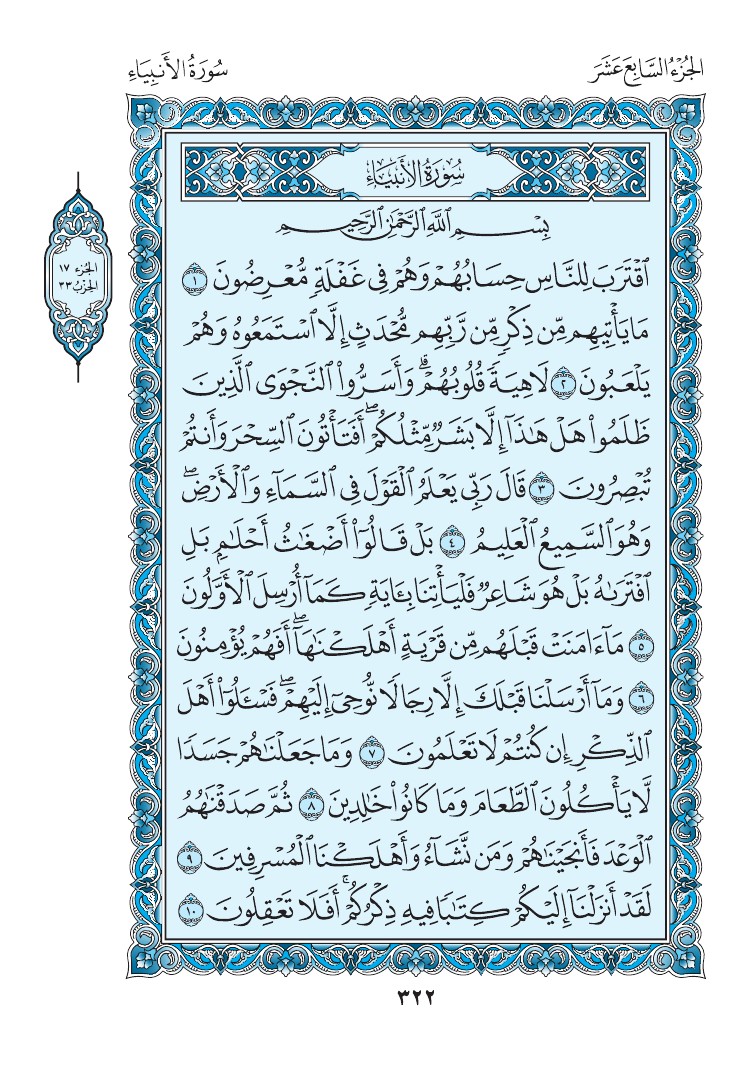 الجُزْءُ السَّابِعَ عَشَرَ
سُورَةُ الأَنبِيَاءِ
سُورَةُ الأَنبِيَاءِ
الجُزء ١٧
الحِزبُ ٣٣
بِسْمِ اللَّهِ الرَّحْمَٰنِ الرَّحِيمِ
ٱقْتَرَبَ لِلنَّاسِ حِسَابُهُمْ وَهُمْ فِى غَفْلَةٍ مُّعْرِضُونَ ١
مَا يَأْتِيهِم مِّن ذِكْرٍ مِّن رَّبِّهِم مُّحْدَثٍ إِلَّا ٱسْتَمَعُوهُ وَهُمْ
يَلْعَبُونَ ٢ لَاهِيَةً قُلُوبُهُمْ ۗ وَأَسَرُّوا۟ ٱلنَّجْوَى ٱلَّذِينَ
ظَلَمُوا۟ هَلْ هَٰذَآ إِلَّا بَشَرٌ مِّثْلُكُمْ ۖ أَفَتَأْتُونَ ٱلسِّحْرَ وَأَنتُمْ
تُبْصِرُونَ ٣ قَالَ رَبِّى يَعْلَمُ ٱلْقَوْلَ فِى ٱلسَّمَآءِ وَٱلْأَرْضِ ۖ
وَهُوَ ٱلسَّمِيعُ ٱلْعَلِيمُ ٤ بَلْ قَالُوٓا۟ أَضْغَٰثُ أَحْلَٰمٍۭ بَلِ
ٱفْتَرَىٰهُ بَلْ هُوَ شَاعِرٌ فَلْيَأْتِنَا بِـَٔايَةٍ كَمَآ أُرْسِلَ ٱلْأَوَّلُونَ
٥ مَآ ءَامَنَتْ قَبْلَهُم مِّن قَرْيَةٍ أَهْلَكْنَٰهَآ ۖ أَفَهُمْ يُؤْمِنُونَ
٦ وَمَآ أَرْسَلْنَا قَبْلَكَ إِلَّا رِجَالًا نُّوحِىٓ إِلَيْهِمْ ۖ فَسْـَٔلُوٓا۟ أَهْلَ
ٱلذِّكْرِ إِن كُنتُمْ لَا تَعْلَمُونَ ٧ وَمَا جَعَلْنَٰهُمْ جَسَدًا
لَّا يَأْكُلُونَ ٱلطَّعَامَ وَمَا كَانُوا۟ خَٰلِدِينَ ٨ ثُمَّ صَدَقْنَٰهُمُ
ٱلْوَعْدَ فَأَنجَيْنَٰهُمْ وَمَن نَّشَآءُ وَأَهْلَكْنَا ٱلْمُسْرِفِينَ ٩
لَقَدْ أَنزَلْنَآ إِلَيْكُمْ كِتَٰبًا فِيهِ ذِكْرُكُمْ ۚ أَفَلَا تَعْقِلُونَ ١٠
٣٢٢